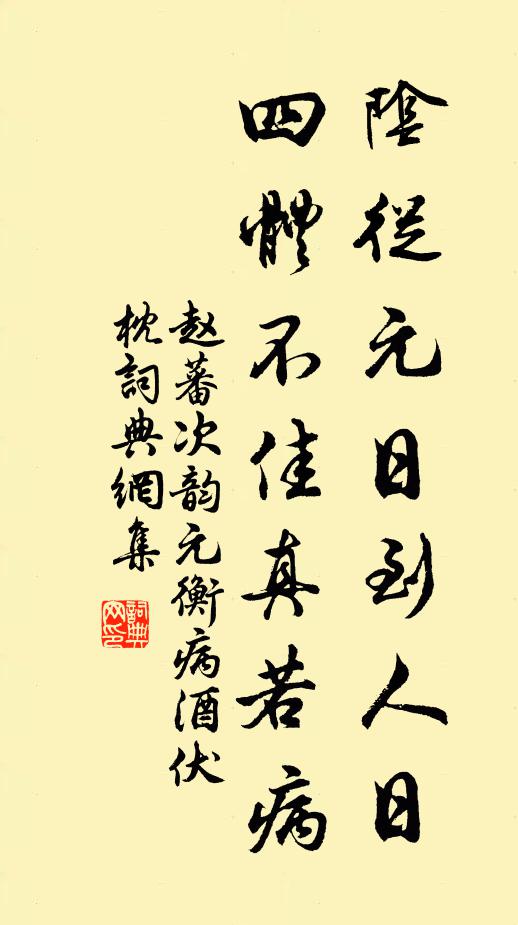 陰從元日到人日
四體不佳真若病
赵蕃次韵元衡病酒伏
枕詞典網集
詞典网印